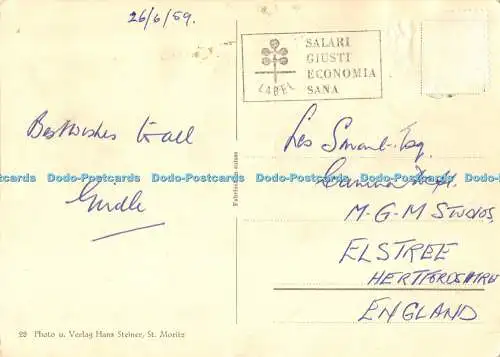 26/6/59.
SALARI
GIUSTI
ECONOMIA
SANA
LABEL
Best wishes to all
Les Smart Esq.
Camera Dept.
M-G-M STUDIOS,
ELSTREE
HERTFORDSHIRE
ENGLAND
28 Photo u. Verlag Hans Steiner, St. Moritz
Dodo-Postcards Dodo-Postcards Dodo-Postcards Dodo-Postcards Dodo-Postcards Dodo-Postcards